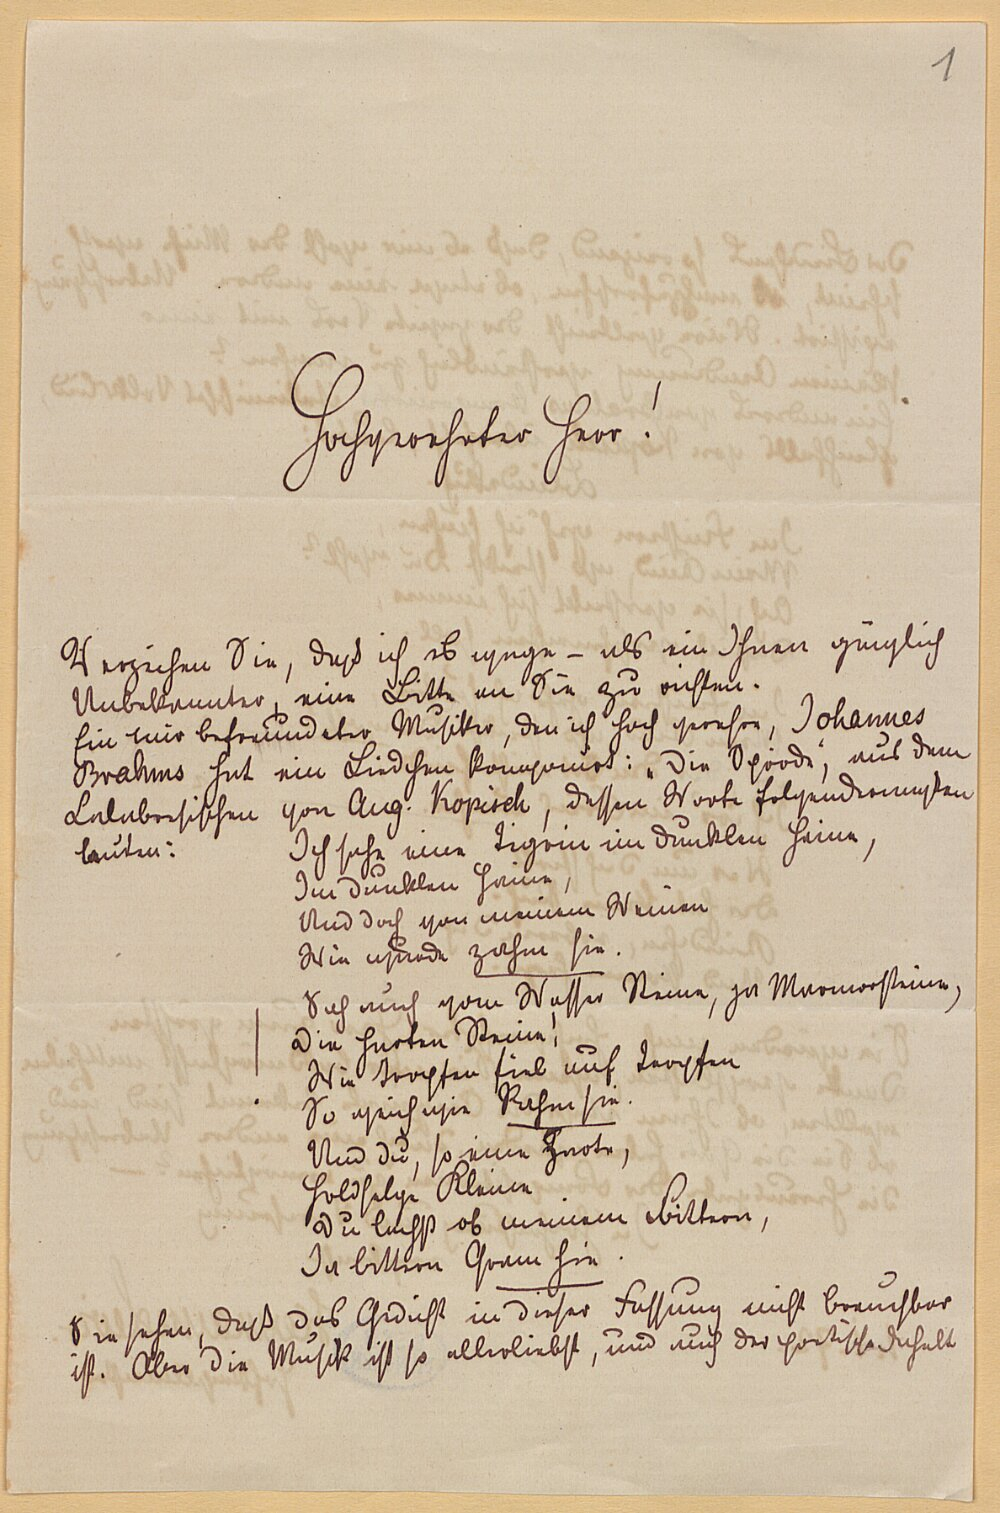 1
Hochgeehrter Herr!
Verzeihen Sie, daß ich es wage – als ein Ihnen gänzlich
Unbekannter, eine Bitte an Sie zu richten.
Ein mir befreundeter Musiker, den ich hoch verehre, Johannes
Brahms hat ein Liedchen komponirt: „Die Spröde“, aus dem
Calabresischen von Aug. Kopisch, dessen Worte folgendermaßen
lauten:
Ich sahe eine Tigrin im dunklen Haine,
Im dunklen Haine,
Und doch von meinem Weinen
Wie wurde zahm sie.
Sah auch vom Wasser Steine, ja Marmorsteine,
Die harten Steine!
Wie Tropfen fiel auf Tropfen
So weich wie Rahm sie.
Und du, so eine zarte,
Holdselge Kleine
Du lachst ob meinem Bittern,
Ja bittern Gram hie.
Sie sehen, daß das Gedicht in dieser Fassung nicht brauchbar
ist. Aber die Musik ist so allerliebst, und auch der poetische Inhalt